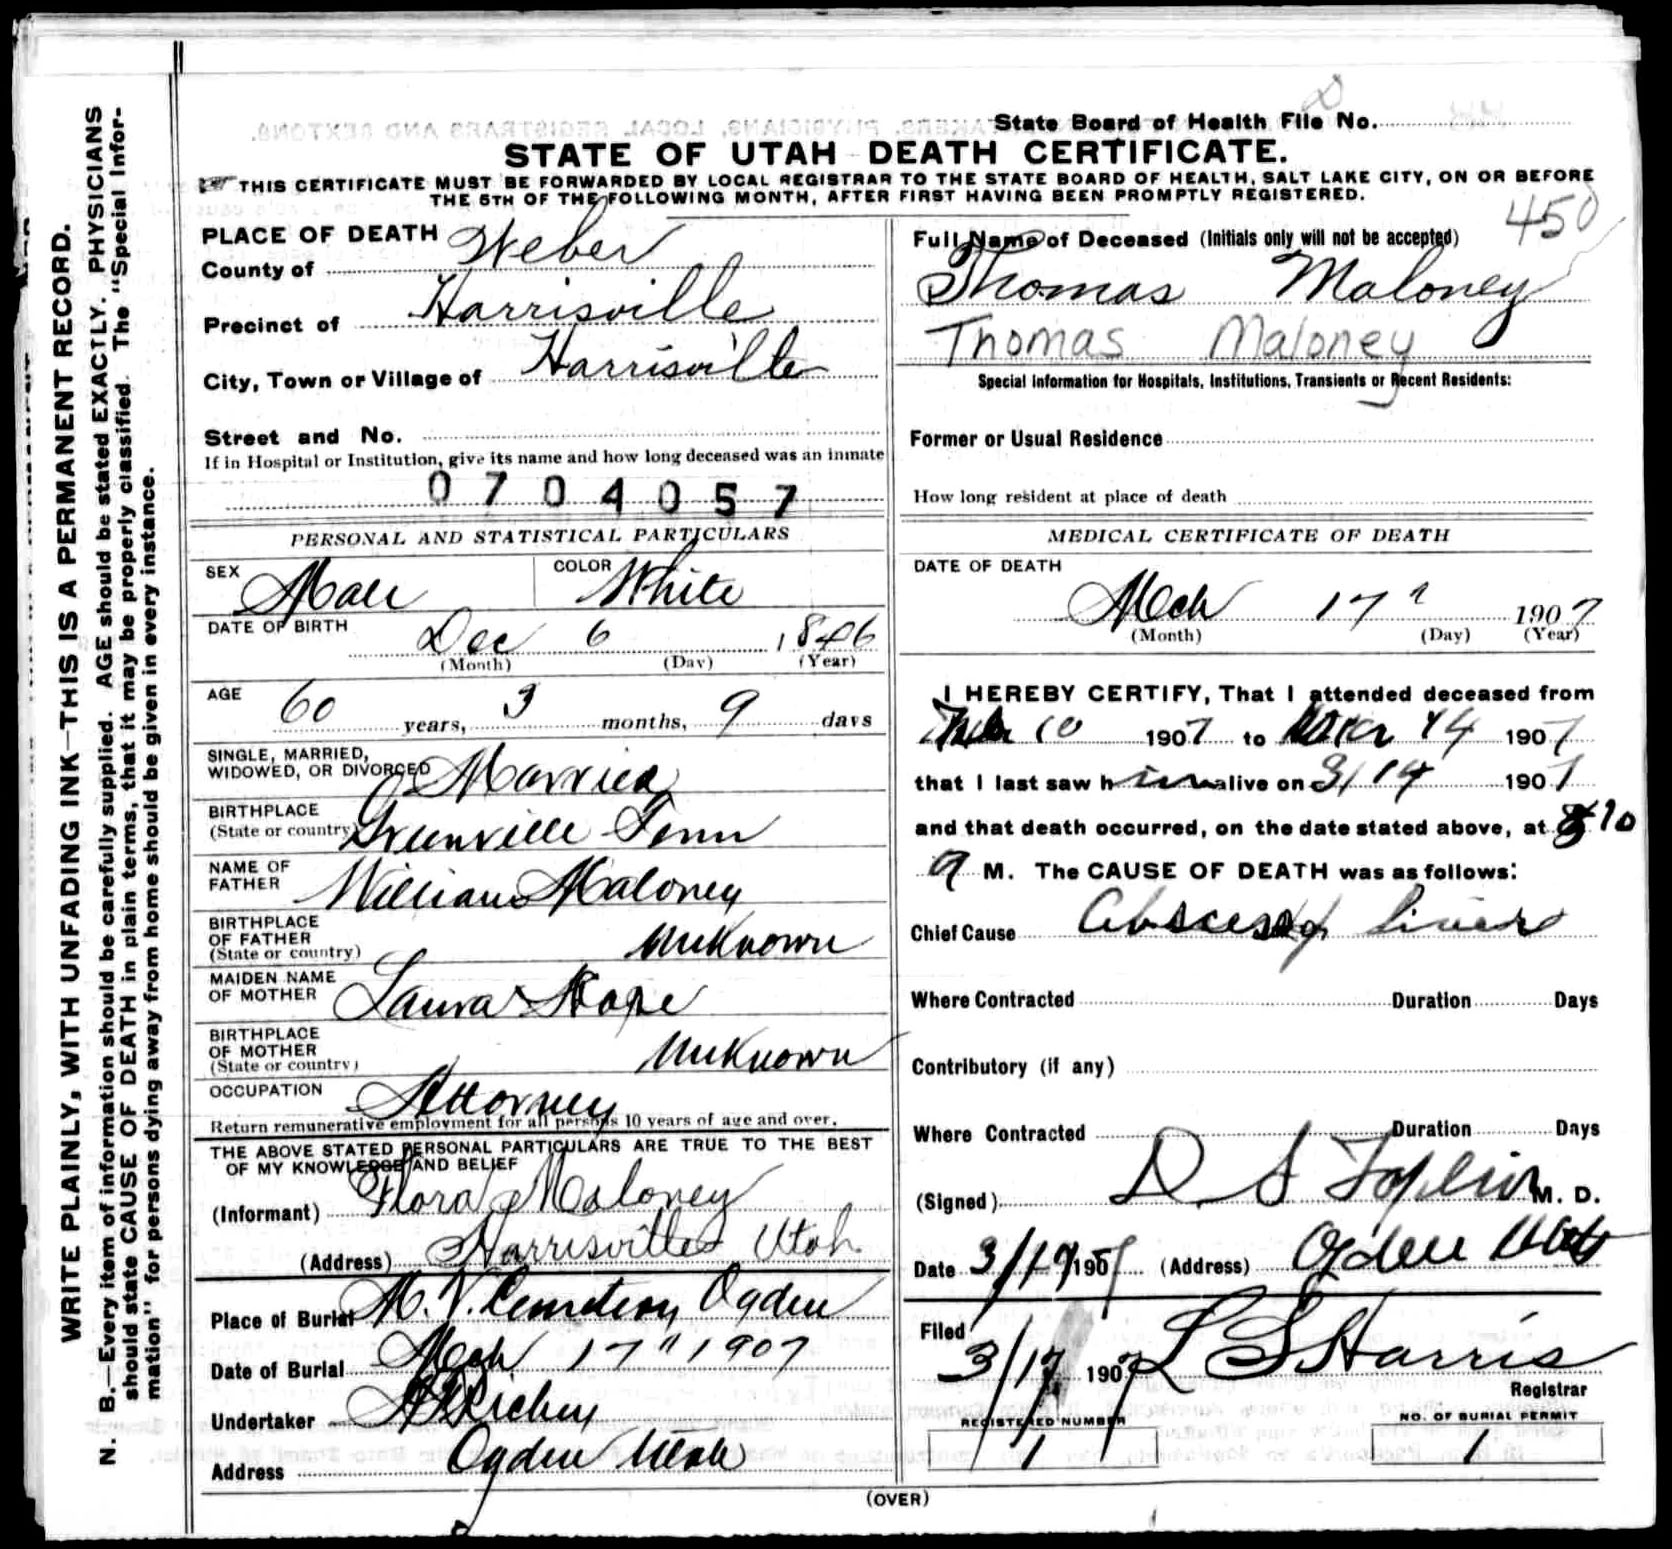 State Board of Health File No.
STATE OF UTAH DEATH CERTIFICATE.
THIS CERTIFICATE MUST BE FORWARDED BY LOCAL REGISTRAR TO THE STATE BOARD OF HEALTH, SALT LAKE CITY, ON OR BEFORE
THE 5TH OF THE FOLLOWING MONTH, AFTER FIRST HAVING BEEN PROMPTLY REGISTERED.
WRITE PLAINLY, WITH UNFADING INK—THIS IS A PERMANENT RECORD.
N. B.—Every item of information should be carefully supplied. AGE should be stated EXACTLY. PHYSICIANS
should state CAUSE OF DEATH in plain terms, that it may be properly classified. The "Special Infor-
mation" for persons dying away from home should be given in every instance.
PLACE OF DEATH
County of Weber
Precinct of Harrisville
City, Town or Village of Harrisville
Street and No.
If in Hospital or Institution, give its name and how long deceased was an inmate
0704057
PERSONAL AND STATISTICAL PARTICULARS
SEX Male COLOR White
DATE OF BIRTH Dec 6 1846
(Month) (Day) (Year)
AGE 60 years, 3 months, 9 days
SINGLE, MARRIED,
WIDOWED, OR DIVORCED Married
BIRTHPLACE
(State or country) Greenville Tenn
NAME OF
FATHER William Maloney
BIRTHPLACE
OF FATHER
(State or country) Unknown
MAIDEN NAME
OF MOTHER Laura
BIRTHPLACE
OF MOTHER
(State or country) Unknown
OCCUPATION Attorney
Return remunerative employment for all persons 10 years of age and over.
THE ABOVE STATED PERSONAL PARTICULARS ARE TRUE TO THE BEST
OF MY KNOWLEDGE AND BELIEF
(Informant) Flora Maloney
(Address) Harrisville Utah
Place of Burial M. V. Cemetery Ogden
Date of Burial Mch 17" 1907
Undertaker Richey
Address Ogden Utah
450
Full Name of Deceased (Initials only will not be accepted)
Thomas Maloney
Thomas Maloney
Special Information for Hospitals, Institutions, Transients or Recent Residents:
Former or Usual Residence
How long resident at place of death
MEDICAL CERTIFICATE OF DEATH
DATE OF DEATH
Mch 17 1907
(Month) (Day) (Year)
I HEREBY CERTIFY, That I attended deceased from
10 1907 to 14 1907
that I last saw him alive on 3/14 1907
and that death occurred, on the date stated above, at 10
a M. The CAUSE OF DEATH was as follows:
Chief Cause Abscess of Liver
Where Contracted Duration Days
Contributory (if any)
Where Contracted Duration Days
(Signed) D. S. M. D.
Date 3/19 1907 (Address) Ogden Utah
Filed
3/17 1907 L S Harris
Registrar
REGISTERED NUMBER
1
NO. OF BURIAL PERMIT
1
(OVER)